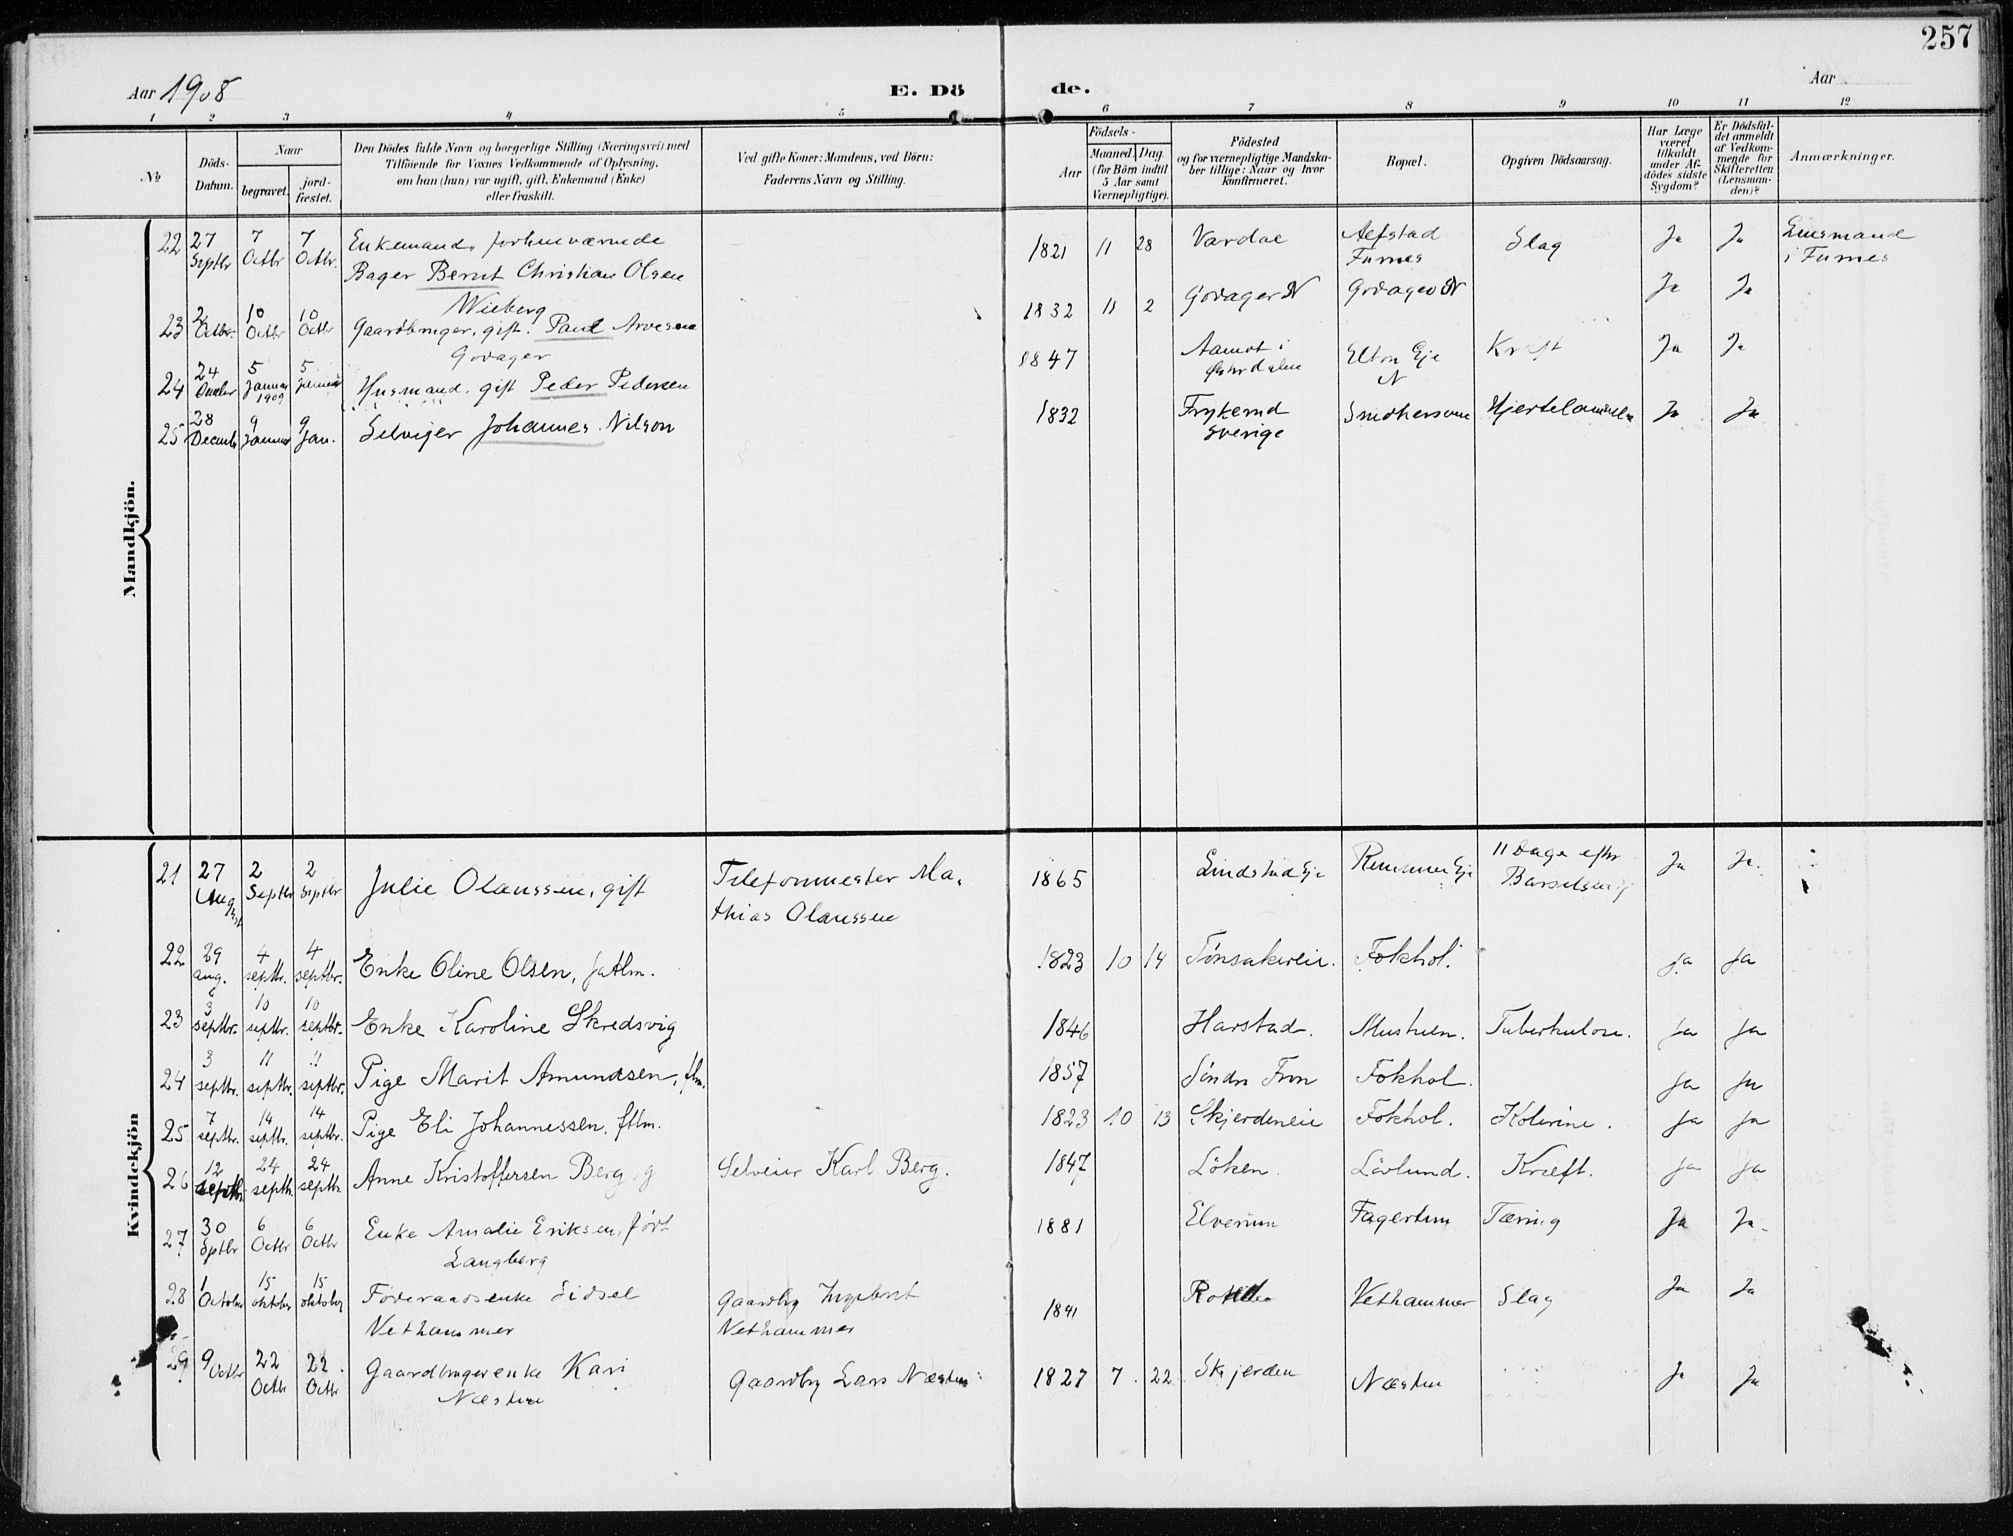 257
Aar 1908 E. Dö de. Aar
1 2 3 4 5 6 7 8 9 10 11 12
No
Döds-Datum.
Naar
begravet.
jord-fæstet.
Den Dödes fulde Navn og borgerlige Stilling (Næringsvei) med
Tilföiende for Voxnes Vedkommende af Oplysning,
om han (hun) var ugift, gift, Enkemand (Enke)
eller fraskilt.
Ved gifte Koner: Mandens, ved Börn:
Faderens Navn og Stilling.
Födsels-
Aar
Maaned. Dag.
(for Börn indtil
5 Aar samt
Værnepligtige).
Födested
og for værnepligtige Mandska-
ber tillige: Naar og hvor
konfirmeret.
Bopæl.
Opgiven Dödsaarsag.
Har Læge
været
tilkaldt
under Af-
dödes sidste
Sygdom?
Er Dödsfal-
det anmeldt
af Vedkom-
mende for
Skifteretten
(Lensman-
den)?
Anmærkninger.
Mandkjön.
22 27 Septbr 7 Octbr 7 Octbr. Enkemand, forhenværende 1821 11 28 Vardal Alfstad Slag Ja Ja Lensmand
Bager Bernt Christian Olsen Furnes i Furnes
Wieberg
23 2 Octbr. 10 Octbr 10 Octbr Gaardbruger, gift. Paul Arvesen 1832 11 2 Godager N Godager N Ja Ja
Godager
24 24 5 Januar 1909 5 Januar Husmand. gift Peder Pedersen 1847 Aamot i Østerdalen Elton Eje N Kræft Ja Ja
25 28 Decemb 9 Januar 9 Jan. Selveier Johannes Nilson 1832 Frykerud Sverige Hjertelammelse Ja Ja
Kvindekjön
21 27 August 2 Septbr 2 Septbr Julie Olaussen, gift Telefonmester Ma- 1865 Lindstad Eje 11 Dage efter Ja Ja.
thias Olaussen
22 29 aug. 4 septbr. 4 septbr. Enke Oline Olsen, fatlm. 1823 10 14 Fokhol. ja ja
23 3 septbr. 10 septbr. 10 septbr. Enke Karoline Skredsvig 1846 Harstad. Tuberkulose. ja ja
24 3 septbr. 11 septbr. 11 septbr. Pige Marit Amundsen, flm. 1857 Søndre Fron Fokhol. ja ja
25 7 septbr. 14 septbr. 14 septbr. Pige Eli Johannessen, ftlm. 1823 10 13 Skjerdeneie Fokhol. Kolerine. ja ja
26 12 septbr. 24 septbr 24 septbr Anne Kristoffersen Berg, g Selveier Karl Berg. 1847 Löken. Lövlund. Kræft. ja ja
27 30 Sptbr 6 Octbr 6 Octbr Enke Amalie Eriksen, født 1881 Elverum Fagertun Tæring Ja Ja.
Langberg
28 1 October 15 oktober 15 oktober Føderaadsenke Sidsel Gaardbr Ingebret 1841 Vethammer Slag Ja Ja
Vethammer Vethammer
29 9 Octbr 22 Octbr 22 Octbr Gaardbrugerenke Kari Gaardbr Lars Næsten 1827 7 22 Skjerden Næsten Ja Ja
Næsten